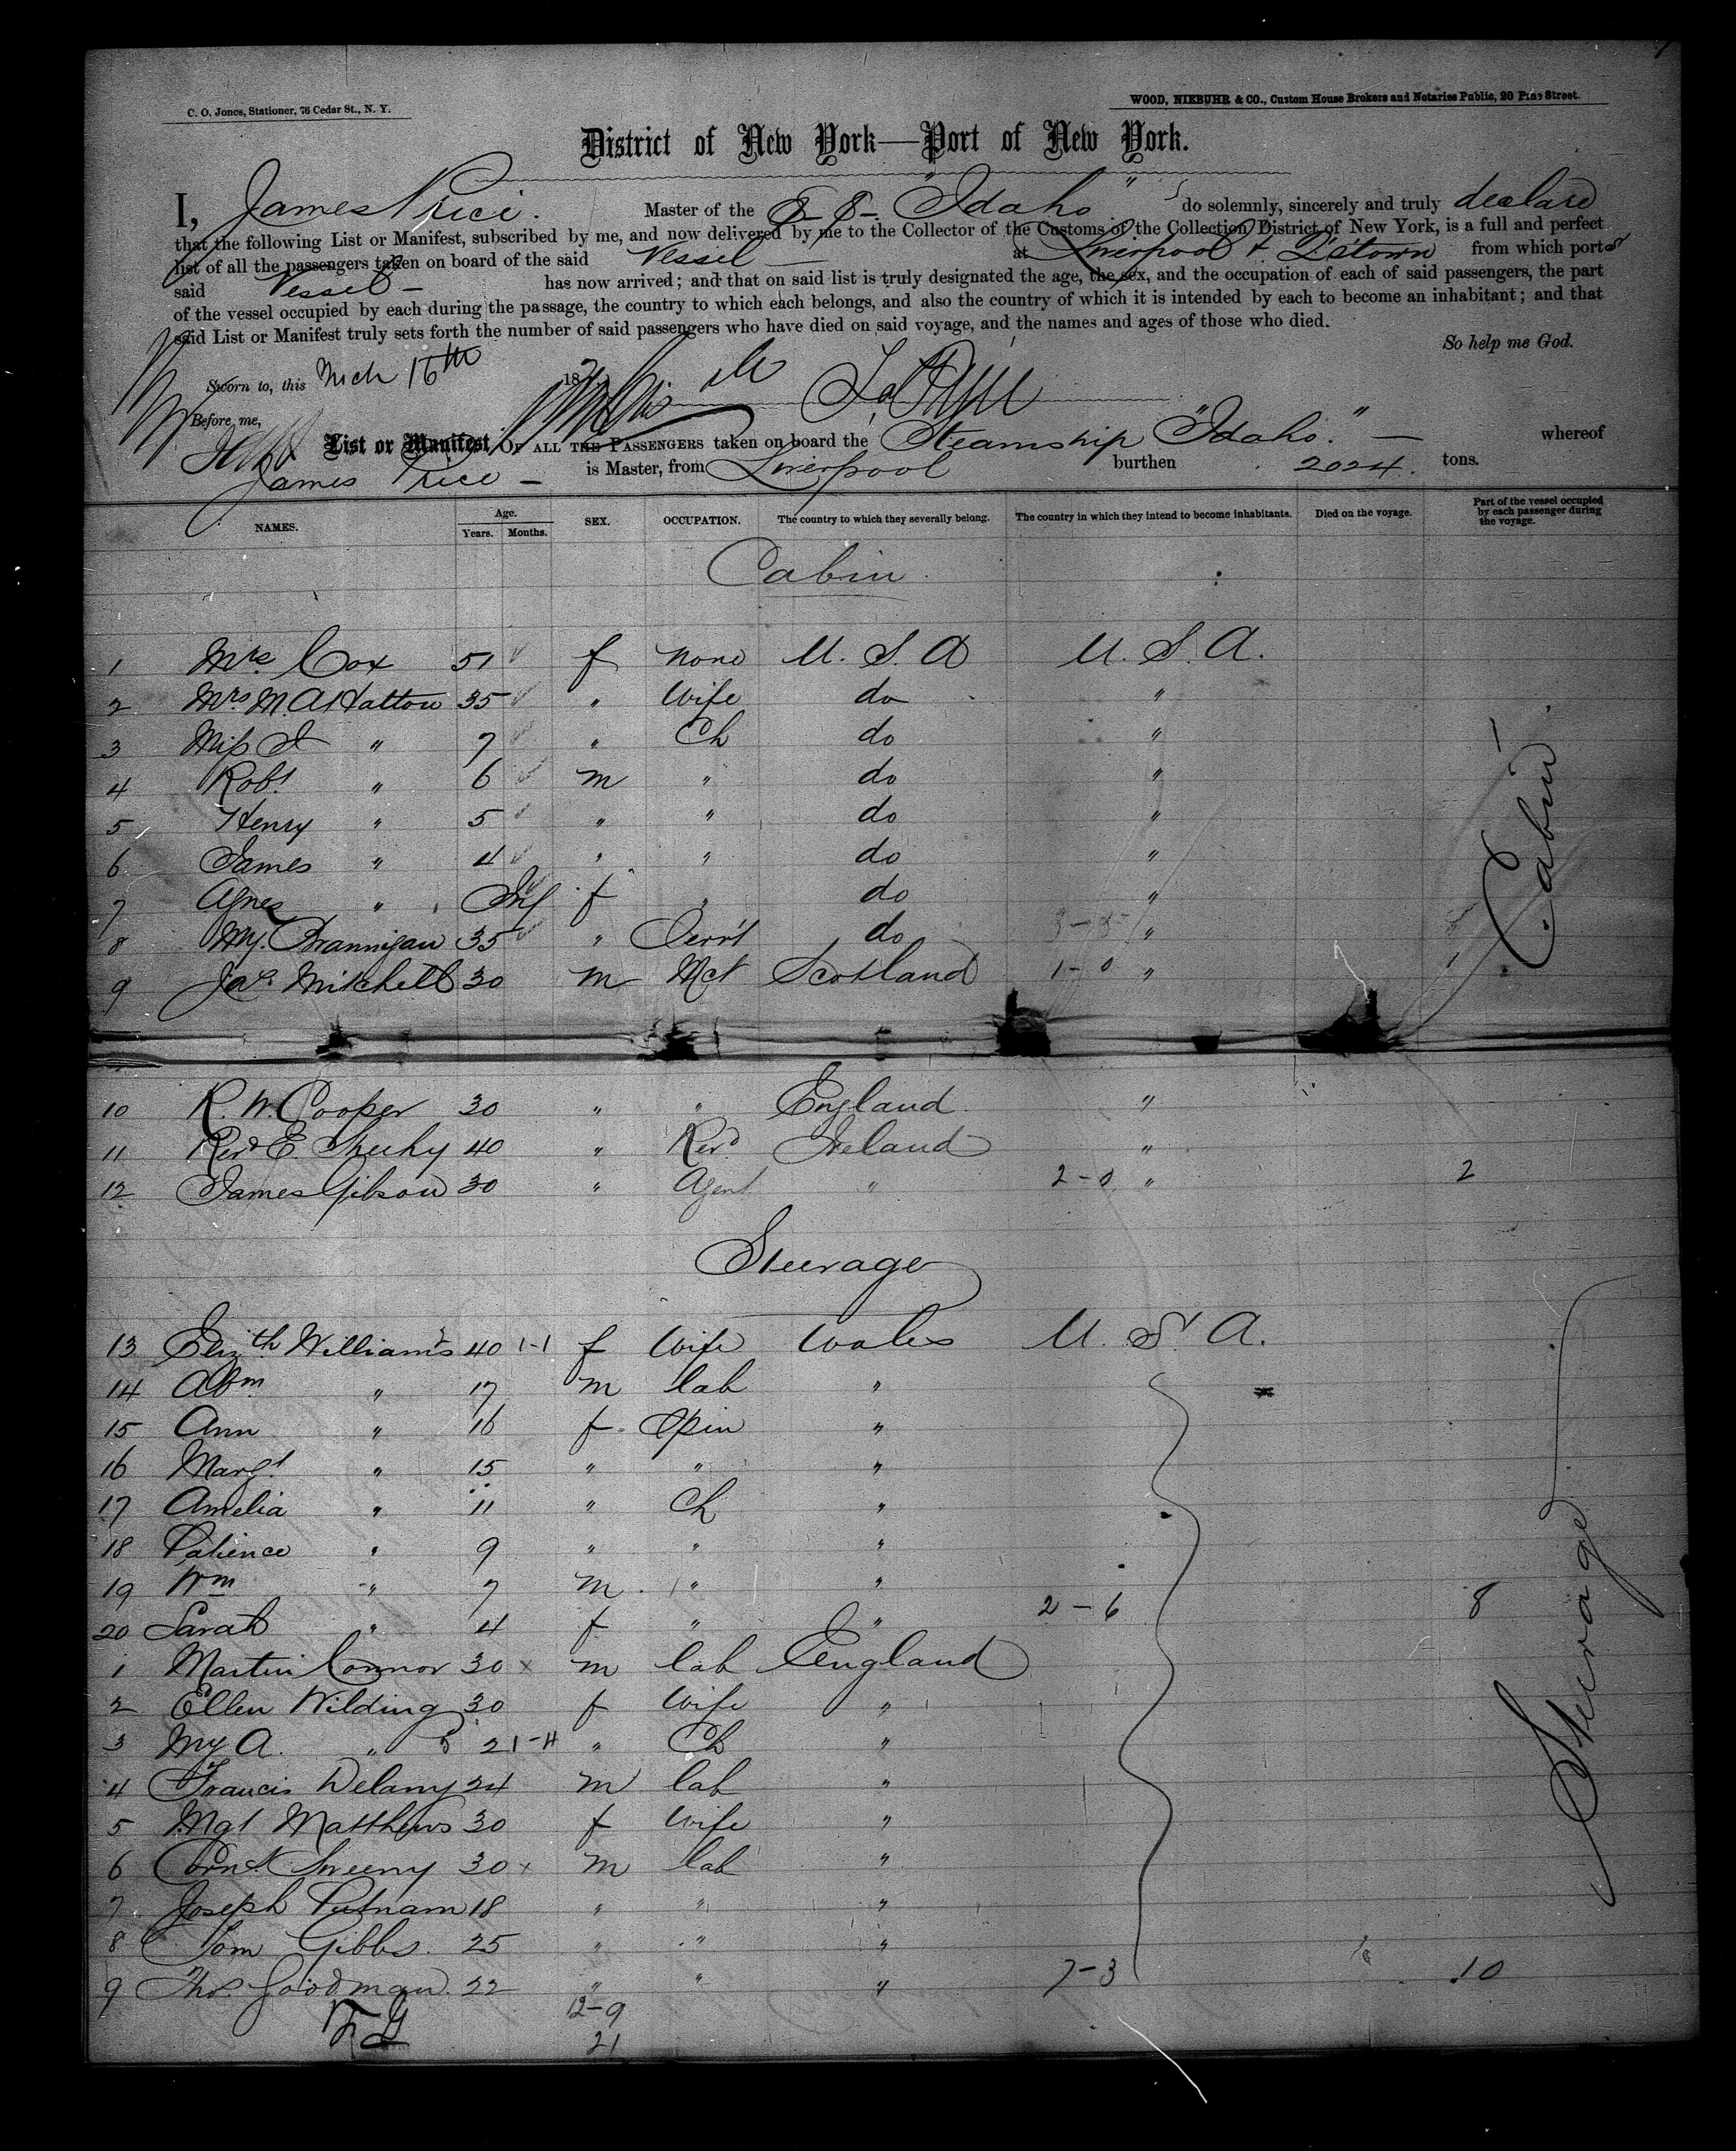 C. O. Jones, Stationer, 76 Cedar St., N. Y.
WOOD, NIEBUHR & CO., Custom House Brokers and Notaries Public, 20 Pine Street.
District of New York—Port of New York.
I, James Price. Master of the S. S. "Idaho" do solemnly, sincerely and truly declare
that the following List or Manifest, subscribed by me, and now delivered by me to the Collector of the Customs of the Collection District of New York, is a full and perfect
list of all the passengers taken on board of the said Vessel — at Liverpool & Q'stown from which ports
said Vessel — has now arrived; and that on said list is truly designated the age, the sex, and the occupation of each of said passengers, the part
of the vessel occupied by each during the passage, the country to which each belongs, and also the country of which it is intended by each to become an inhabitant; and that
said List or Manifest truly sets forth the number of said passengers who have died on said voyage, and the names and ages of those who died.
So help me God.
Sworn to, this Mch 16th 187
Before me,
List or Manifest OF ALL THE PASSENGERS taken on board the Steamship "Idaho." — whereof
James Price — is Master, from Liverpool burthen 2024. tons.
NAMES. Age. Years. Months. SEX. OCCUPATION. The country to which they severally belong. The country in which they intend to become inhabitants. Died on the voyage. Part of the vessel occupied by each passenger during the voyage.
Cabin
1 Mrs Cox 51 f none U. S. A U. S. A.
2 Mrs M. A Hatton 35 " Wife do "
3 Miss I " 7 " Ch do "
4 Robt " 6 m " do "
5 Henry " 5 " " do "
6 James " 4 " " do "
7 Agnes " Inf f " do "
8 My. Brannigan 35 " Serv't do 3-5 "
9 Jas Mitchell 30 m Mct Scotland 1-0 " 1
Cabin
10 R. W. Cooper 30 " " England "
11 Revd E. Sheehy 40 " Revd Ireland "
12 James Gibson 30 " Agent " 2-0 " 2
Steerage
13 Elizth Williams 40 1-1 f Wife Wales U. S. A.
14 Abm " 17 m lab "
15 Ann " 16 f Spin "
16 Margt " 15 " " "
17 Amelia " 11 " Ch "
18 Patience " 9 " " "
19 Wm " 7 m " "
20 Sarah " 4 f " " 2-6 8
1 Martin Connor 30 x m lab England
2 Ellen Wilding 30 f Wife "
3 My A. " 2 1-4 " Ch "
4 Francis Delany 24 m lab "
5 Mgt Matthews 30 f Wife "
6 Sweeny 30 x m lab "
7 Joseph Putnam 18 " " "
8 Tom Gibbs. 25 " " "
9 Thos Goodman. 22 " " " 7-3 10
Steerage
12-9
21